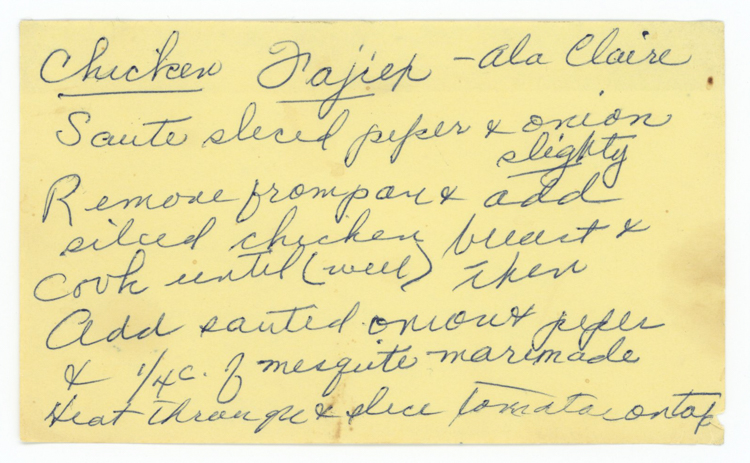 Chicken Fajiep - Ala Claire
Saute sliced peper & onion
slighty
Remove from pan & add
silced chicken breast &
Cook until (well) then
Add sauted onion & peper
& 1/4 c. of mesquite marinade
Heat through & slice tomato on top